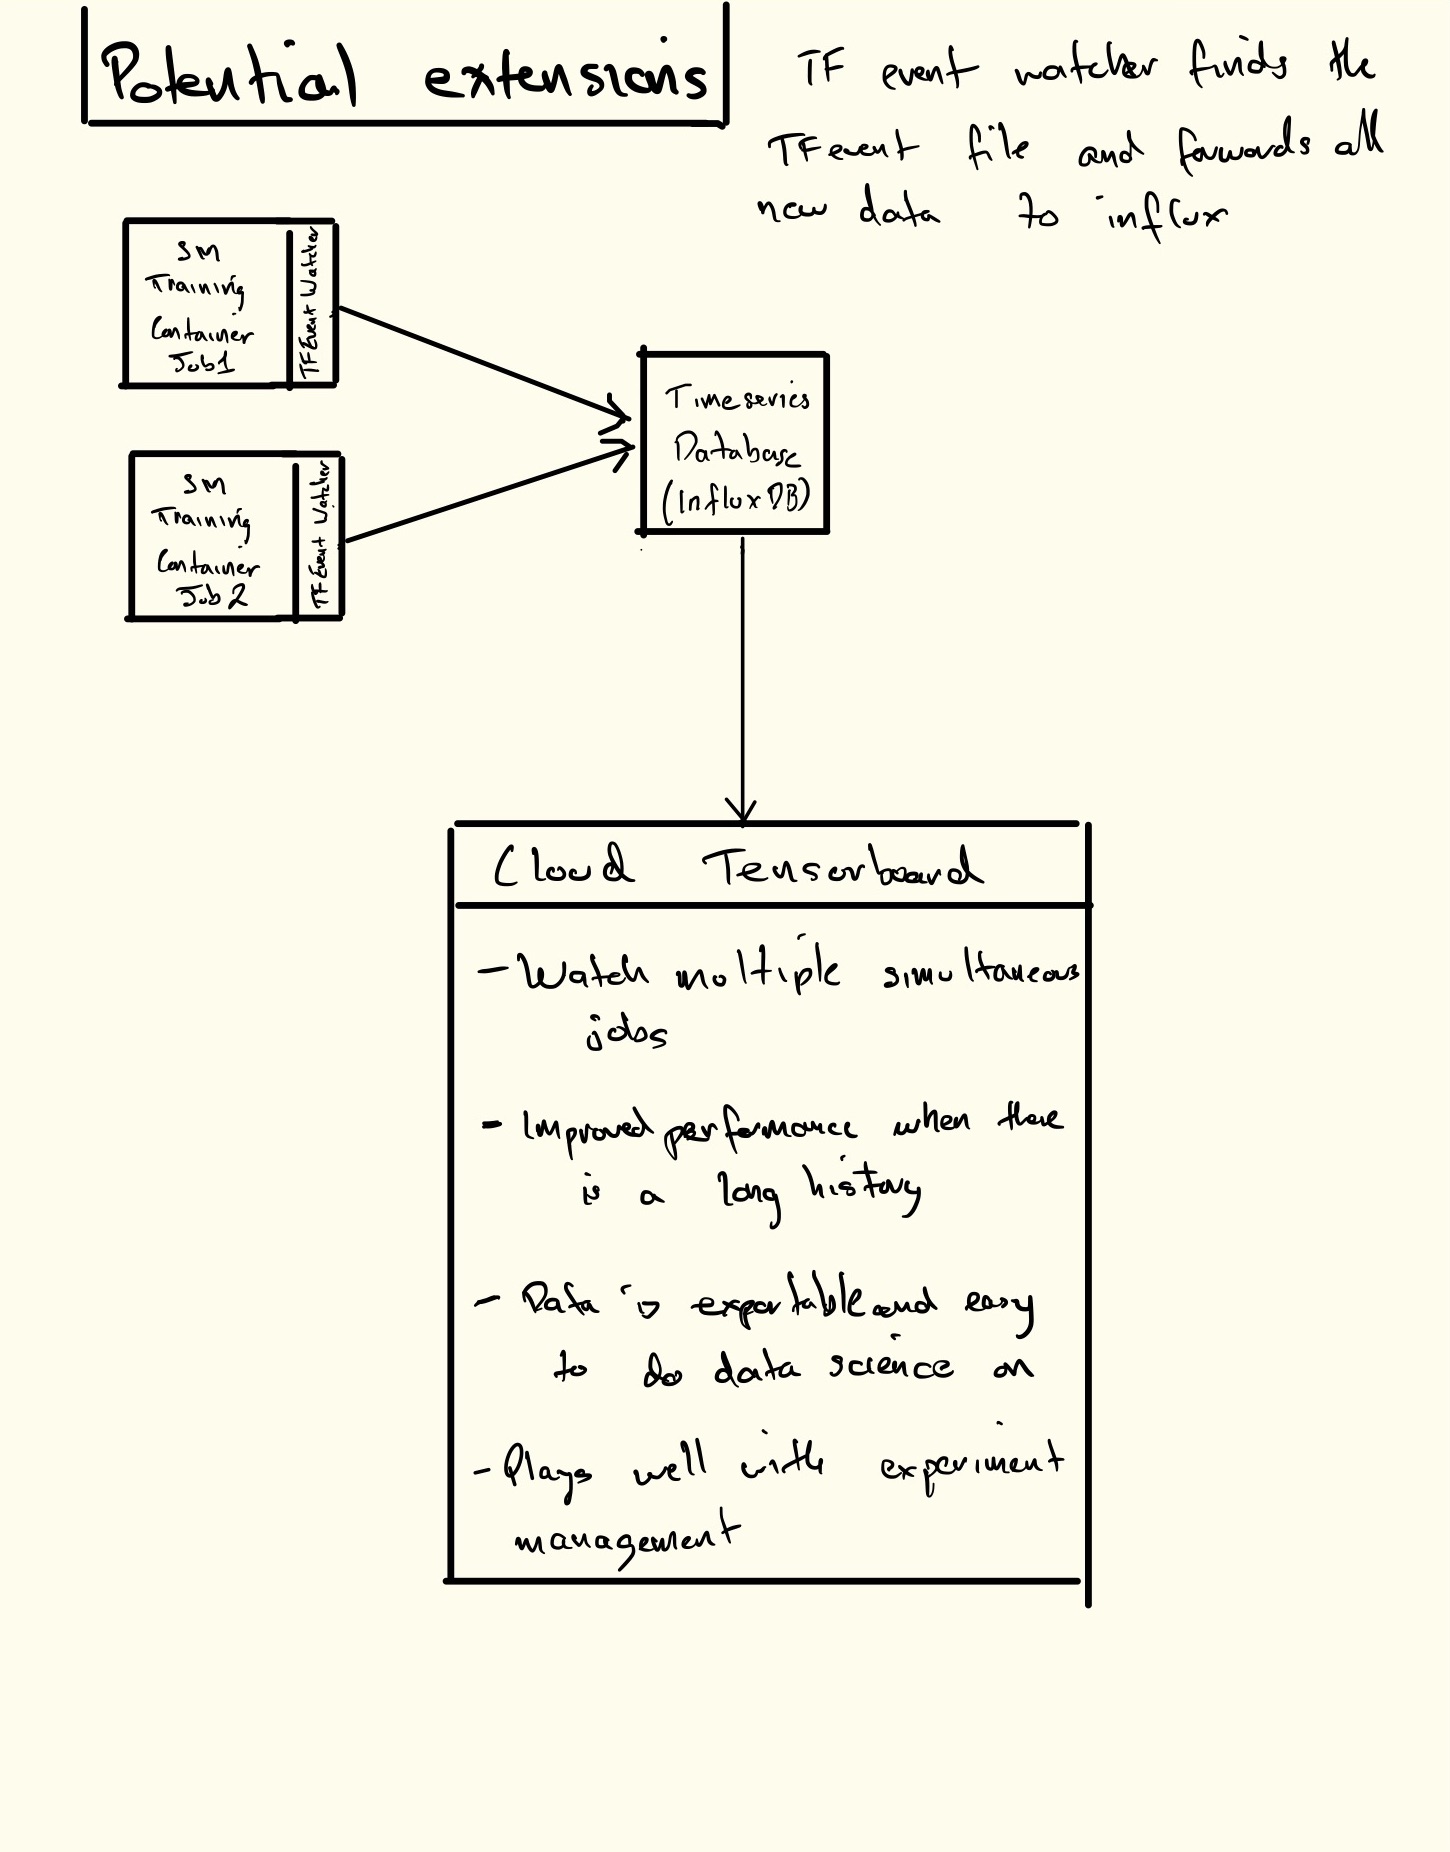 Potential extensions
TF event watcher finds the
TFevent file and forwards all
new data to influx
SM
Training
Container
Job1
TFEvent Watcher
SM
Training
Container
Job 2
TFEvent Watcher
Timeseries
Database
(InfluxDB)
Cloud Tensorboard
- Watch multiple simultaneous
jobs
- Improved performance when there
is a long history
- Data is exportable and easy
to do data science on
- Plays well with experiment
management